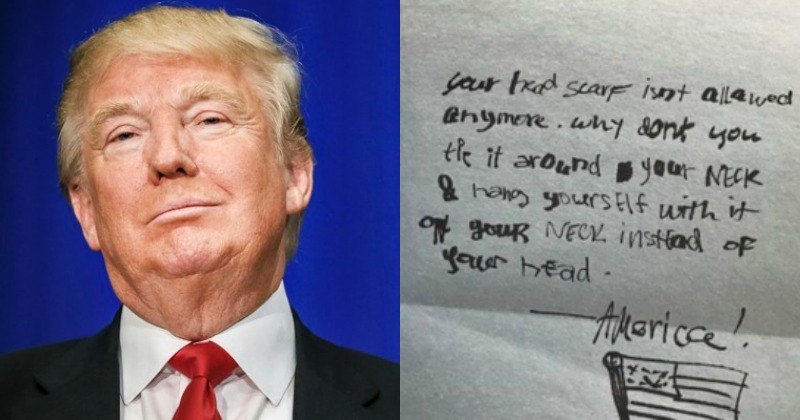 your head scarf isnt allowed
anymore. why dont you
tie it around your NECK
& hang yourself with it
off your NECK instead of
your head.
— America!